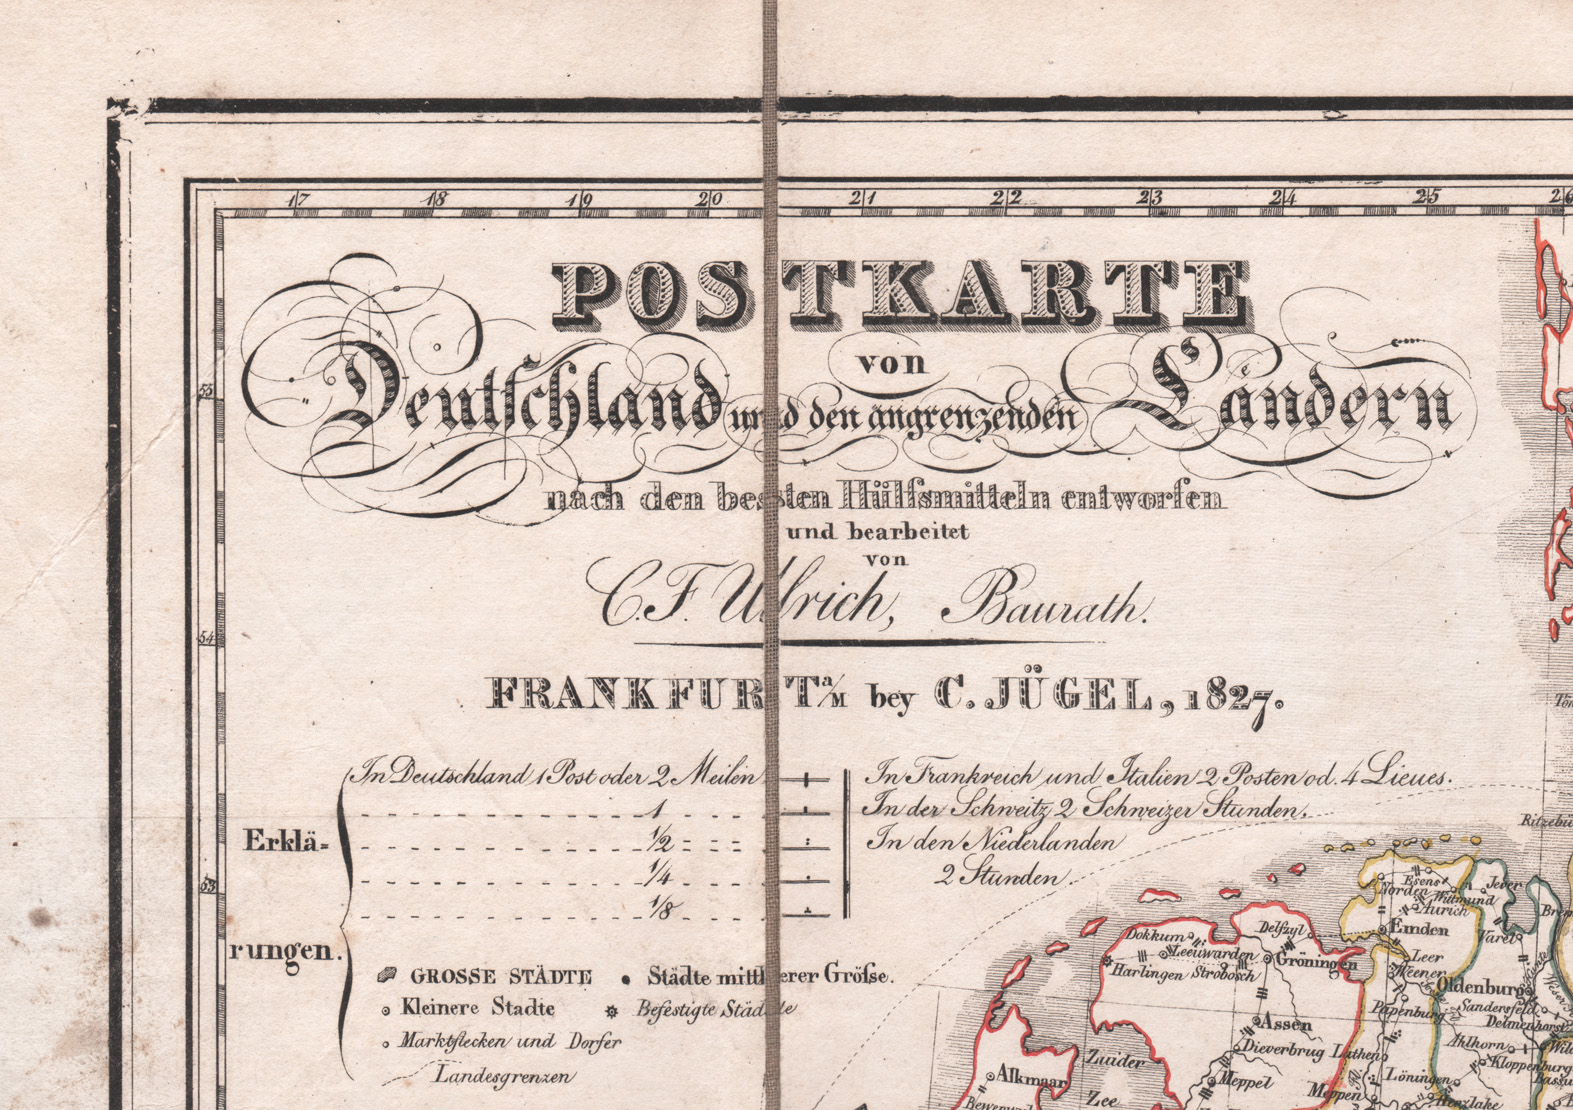 17 18 19 20 21 22 23 24 25 26
POSTKARTE
von
Deutschland und den angrenzenden Ländern
nach den besten Hülfsmitteln entworfen
und bearbeitet
von
C. F. Ullrich, Baurath.
FRANKFURT a/M bey C. JÜGEL, 1827.
55
54
53
Erklä=
rungen.
In Deutschland 1 Post oder 2 Meilen
1
1/2
1/4
1/8
In Frankreich und Italien 2 Posten od. 4 Lieues.
In der Schweitz 2 Schweizer Stunden.
In den Niederlanden
2 Stunden.
GROSSE STÄDTE
Städte mittlerer Gröſse.
Kleinere Stadte
Befestigte Städte
Marktflecken und Dorfer
Landesgrenzen
Esens
Norden
Wittmund
Jever
Aurich
Emden
Varel
Dokkum
Delfzyl
Leeuwarden
Harlingen
Strobosch
Gröningen
Leer
Weener
Oldenburg
Papenburg
Sandersfeld
Delmenhorst
Assen
Ahlhorn
Dieverbrug
Lathen
Kloppenburg
Zuider
Zee
Alkmaar
Meppel
Löningen
Meppen